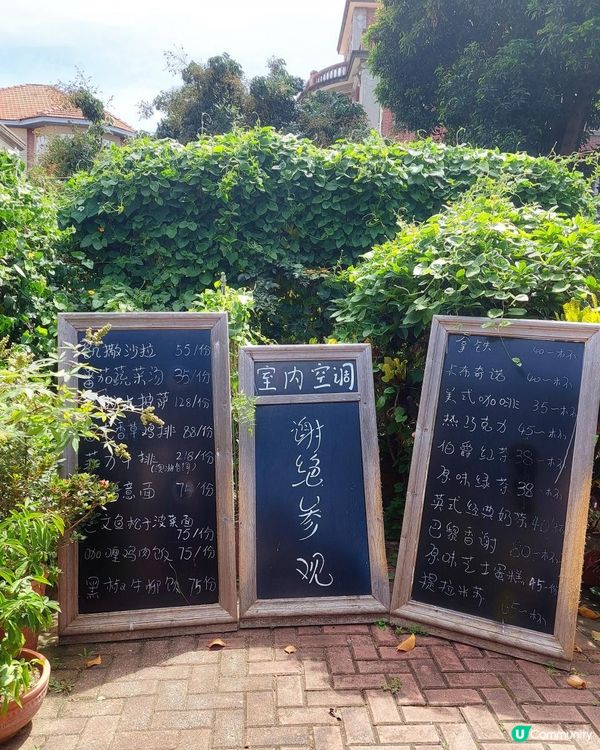 凯撒沙拉 55/份
番茄蔬菜汤 35/份
披萨 128/份
香草鸡排 88/份
菲力牛排 218/份
意面 75/份
三文鱼松子菠菜面
75/份
咖喱鸡肉饭 75/份
黑椒牛柳饭 75/份
室内空调
谢绝参观
拿铁 40一杯
卡布奇诺 40一杯
美式咖啡 35一杯
热巧克力 45一杯
伯爵红茶 38一杯
原味绿茶 38一杯
英式经典奶茶 40一杯
巴黎香榭 80一杯
原味芝士蛋糕 45一份
提拉米苏
U Community